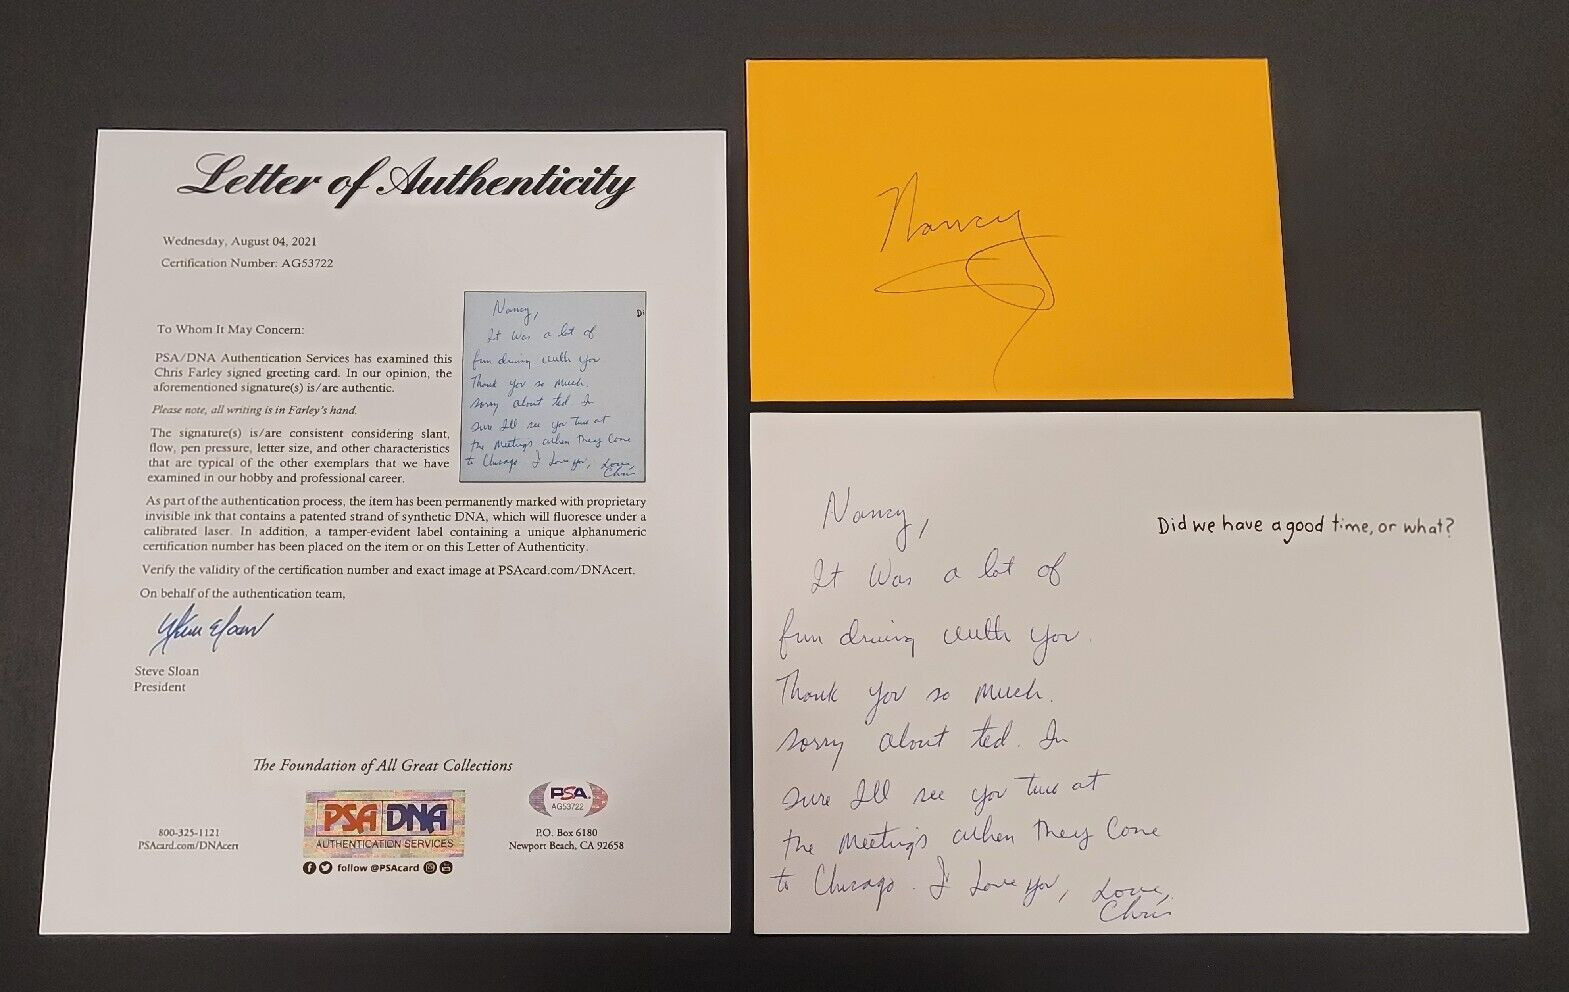 Letter of Authenticity
Wednesday, August 04, 2021
Certification Number: AG53722
To Whom It May Concern:
PSA/DNA Authentication Services has examined this
Chris Farley signed greeting card. In our opinion, the
aforementioned signature(s) is/are authentic.
Please note, all writing is in Farley's hand.
The signature(s) is/are consistent considering slant,
flow, pen pressure, letter size, and other characteristics
that are typical of the other exemplars that we have
examined in our hobby and professional career.
Nancy,
Di
It Was a lot of
fun driving with you
Thank you so much.
sorry about ted. Im
sure Ill see you two at
the Meetings when they Come
to Chicago I Love You, Love,
Chris
As part of the authentication process, the item has been permanently marked with proprietary
invisible ink that contains a patented strand of synthetic DNA, which will fluoresce under a
calibrated laser. In addition, a tamper-evident label containing a unique alphanumeric
certification number has been placed on the item or on this Letter of Authenticity.
Verify the validity of the certification number and exact image at PSAcard.com/DNAcert.
On behalf of the authentication team,
Steve Sloan
Steve Sloan
President
The Foundation of All Great Collections
800-325-1121
PSAcard.com/DNAcert
PSA DNA
AUTHENTICATION SERVICES
follow @PSAcard
PSA
AG53722
P.O. Box 6180
Newport Beach, CA 92658
Nancy
Nancy,
It Was a lot of
fun driving with you.
Thank you so much.
sorry about ted. Im
sure Ill see you two at
the Meetings when they Come
to Chicago. I Love You, Love,
Chris
Did we have a good time, or what?